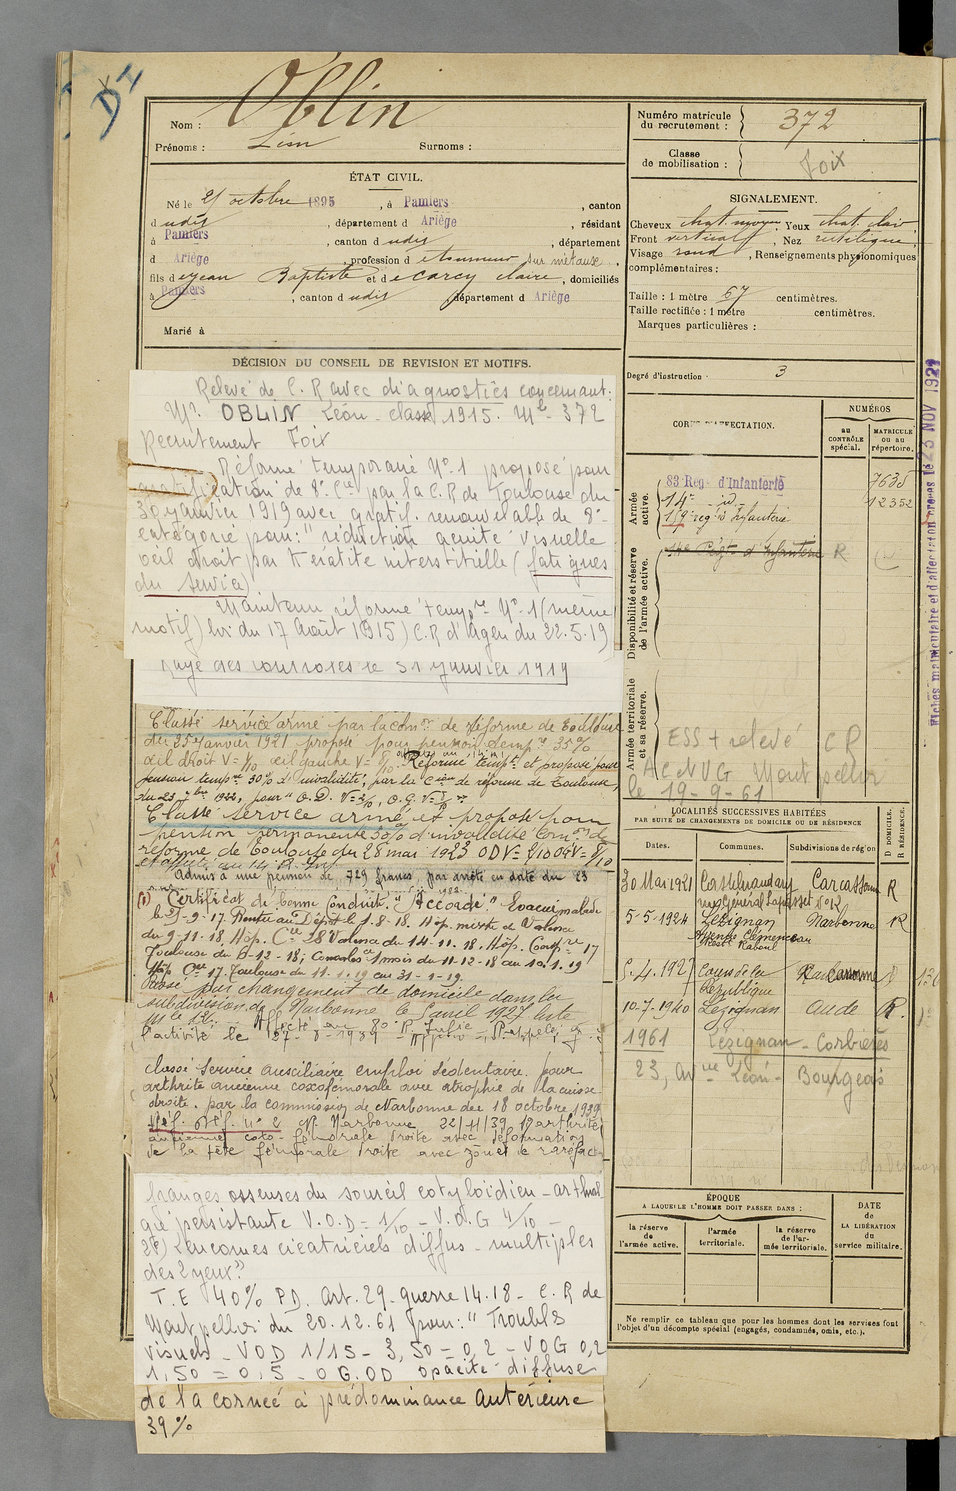 Oblin
Nom :
Prénoms : Léon Surnoms :
ÉTAT CIVIL.
Né le 21 octobre 1895, à Pamiers, canton
d udis, département d Ariège, résidant
à Pamiers, canton d udis, département
d Ariège, profession d tourneur sur métaux,
fils d e Jean Baptiste et d e Carcy Claire, domiciliés
à Pamiers, canton d udis, département d Ariège
Marié à
DÉCISION DU CONSEIL DE REVISION ET MOTIFS.
Relevé de C. R avec diagnostics concernant :
Mr. OBLIN Léon - classe 1915. Mle - 372
Recrutement Foix
Réforme temporaire No 1 proposé pour
gratification de 8e Cie par la C.R de Toulouse du
30 janvier 1919 avec gratif. renouvelable de 8e
catégorie pour : "réduction acuité visuelle
oeil droit par Kératite interstitielle (fatigues
du service)
Maintenu réformé tempre No 1 (même
motif) loi du 17 Août 1915) C.R d'Agen du 22.5.19)
Rayé des contrôles le 31 janvier 1919
Classé service armé par la comon de réforme de Toulouse
du 25 janvier 1921 proposé pour pension temp re 35%
œil droit V = 1/10 œil gauche V = 8/10 Réforme tempre et proposé pour
pension tempre 30% d'invalidité, par la Cion de réforme de Toulouse,
du 23 7bre 1922, pour "O.D. V=2/10, O.G. V=
Classé service armé et proposé pour
pension permanente 30% d'invalidité Comon de
réforme de Toulouse du 28 mai 1923 OD V= 2/10 OG V= 8/10
Admis à une pension de 729 francs par arrêté en date du 23
(1) Certificat de bonne conduite. "Accordé" Evacué malade
le 5-9-17. Rentré au Dépôt le 1-8-18. Hôp. mixte de Valence
du 9-11-18. Hôp. Cre 28 Valence du 14-11-18. Hôp. Compre 17
Toulouse du 8-12-18; Convales. 1 mois du 11-12-18 au 10.1.19
Hôp Cre 17. Toulouse du 11.1.19 au 31-1-19.
Passé par changement de domicile dans la
subdivision de Narbonne le 5 avril 1927 liste
Affecté au
l'activité le 27-8-1939
Classé Service auxiliaire emploi sédentaire pour
arthrite ancienne coxofémorale avec atrophie de la cuisse
droite. par la commission de Narbonne du 18 octobre 1939
Réf. Déf. no 2 Narbonne 22/11/39 arthrite
ancienne coxo-fémorale droite avec déformation
de la tête fémorale droite avec zones de raréfaction
franges osseuses du sourcil cotyloïdien - arthral
gie persistante V.O.D = 1/10 - V.O.G 4/10 -
2e) Leucomes cicatriciels diffus - multiples
des 2 yeux."
T.E 40% P.D. Art. 29. guerre 14.18 - C.R de
Montpellier du 20.12.61 pour : "Troubles
visuels - VOD 1/15 - 3,50 = 0,2 - VOG 0,2
1,50 = 0,5 - OG.OD opacité diffuse
de la cornée à prédominance antérieure
39%
Numéro matricule
du recrutement : 372
Classe
de mobilisation : Foix
SIGNALEMENT.
Cheveux chat. moyen Yeux chat. clair
Front vertical, Nez rectiligne,
Visage rond, Renseignements physionomiques
complémentaires :
Taille : 1 mètre 67 centimètres.
Taille rectifiée : 1 mètre centimètres.
Marques particulières :
Degré d'instruction : 3
CORPS D'AFFECTATION.
NUMÉROS
au
CONTRÔLE
spécial.
MATRICULE
ou au
répertoire.
Armée
active.
83 Reg d'Infanterie 7635
14e id 12352
119e rég d'Infanterie
Disponibilité et réserve
de l'armée active.
14e Régt d'Infanterie R
Armée territoriale
et sa réserve.
ESS + relevé CR
ACNVG Montpellier
le 19-9-61
Fiches matriculaire et d'affectation créées le 23 NOV 1921
LOCALITÉS SUCCESSIVES HABITÉES
PAR SUITE DE CHANGEMENTS DE DOMICILE OU DE RÉSIDENCE
Dates. Communes. Subdivisions de région
D DOMICILE.
R RÉSIDENCE.
30 Mai 1921 Castelnaudary Carcassonne R
rue Général Lapasset No 2
5-5-1924 Lézignan Narbonne R
Avenue Clémenceau
5.4.1927 Cours de la Narbonne D
République
10-7-1940 Lézignan Aude R.
1961 Lézignan - Corbières
23, Avue Léon - Bourgeois
ÉPOQUE
A LAQUELLE L'HOMME DOIT PASSER DANS :
la réserve
de
l'armée active.
l'armée
territoriale.
la réserve
de l'ar-
mée territoriale.
DATE
de
LA LIBÉRATION
du
service militaire.
Ne remplir ce tableau que pour les hommes dont les services font
l'objet d'un décompte spécial (engagés, condamnés, omis, etc.).